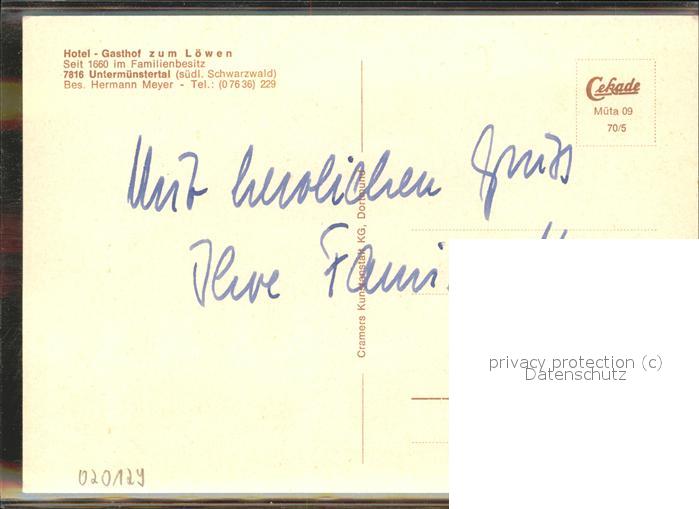 Hotel - Gasthof zum Löwen
Seit 1660 im Familienbesitz
7816 Untermünstertal (südl. Schwarzwald)
Bes. Hermann Meyer - Tel.: (0 76 36) 229
Cekade
Müta 09
70/5
Mit herzlichem Gruss
Ihre
Cramers Kunstanstalt KG, Dortmund
privacy protection (c)
Datenschutz
020129